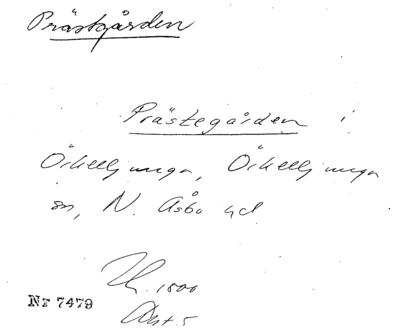 Prästgården
Prästegården i
Örkelljunga, Örkelljunga
sn, N. Åsbo hd
1800
Nr 7479